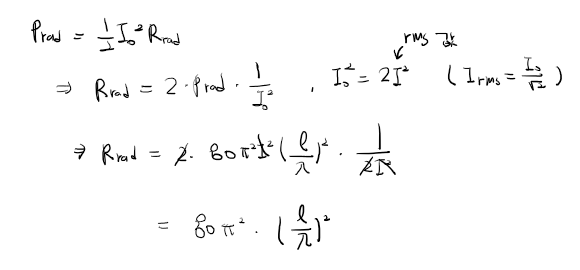 P_rad = 1/2 I₀² R_rad
⇒ R_rad = 2 · P_rad · 1/I₀² , I₀² = 2I² ( I_rms = I₀/√2 ) rms 값
⇒ R_rad = 2 · 80π²I² (l/λ)² · 1/2I²
= 80π² · (l/λ)²